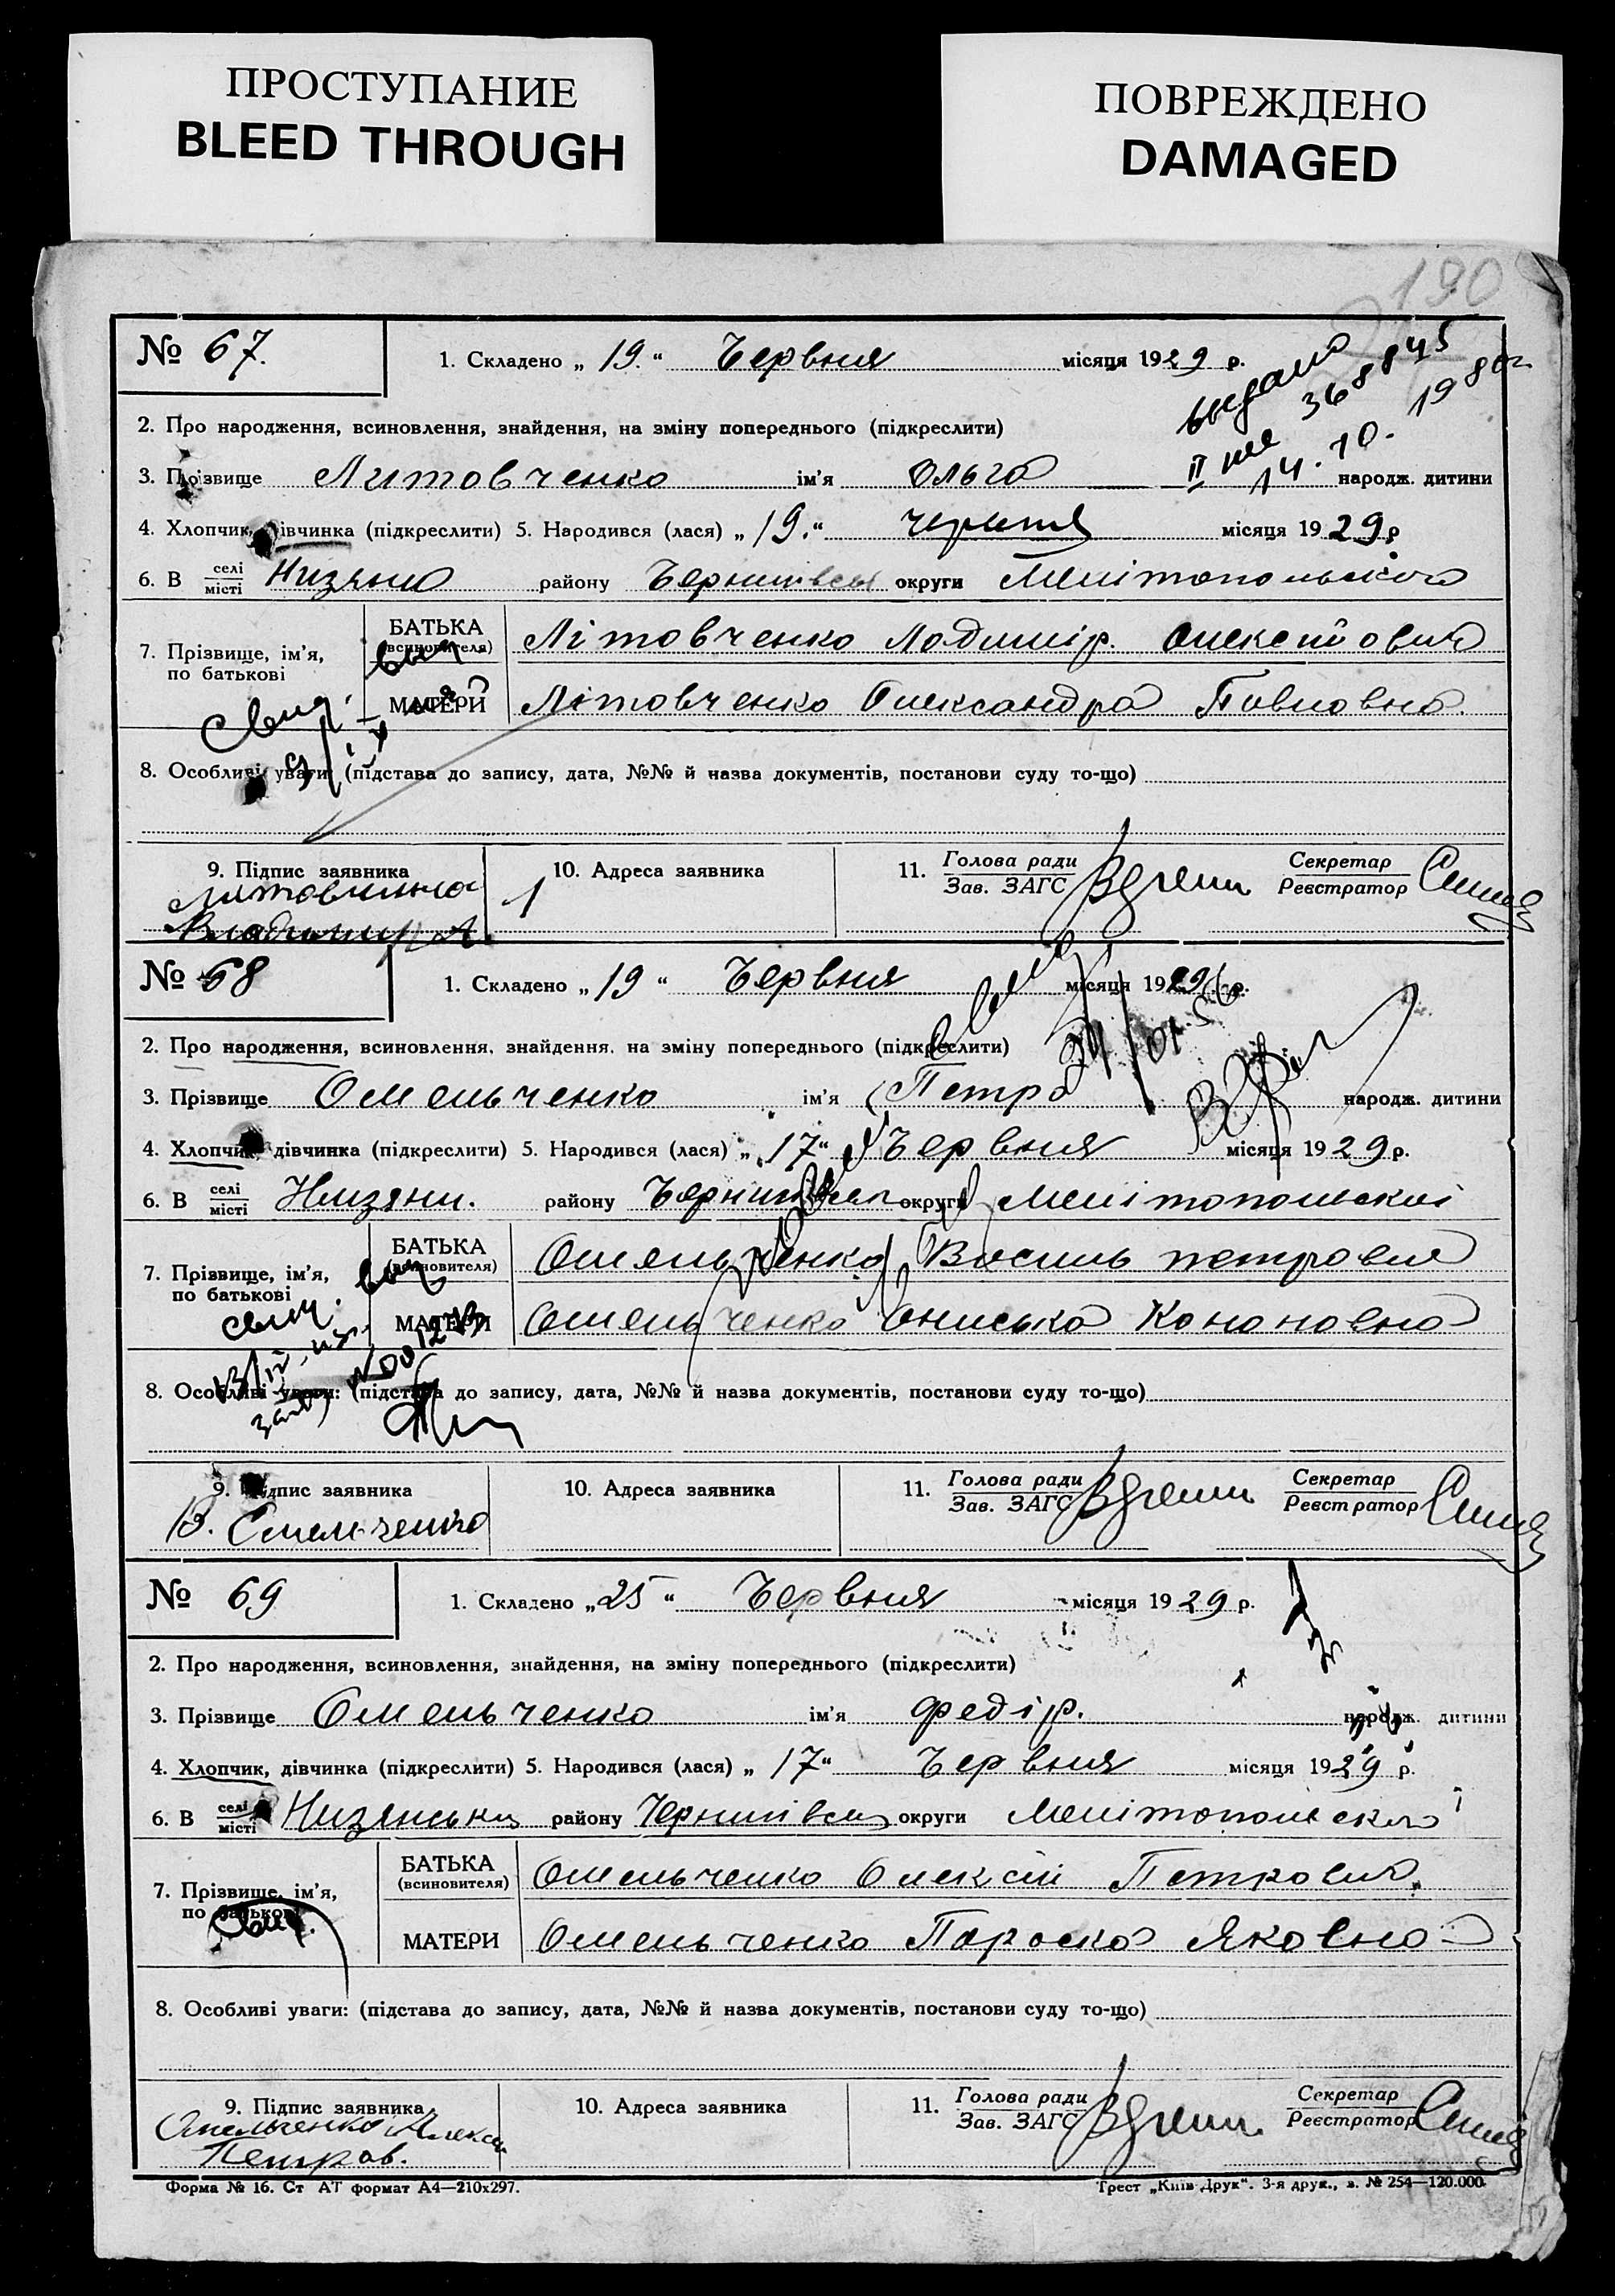 ПРОСТУПАНИЕ
BLEED THROUGH
ПОВРЕЖДЕНО
DAMAGED
190
№ 67.
1. Складено „ 19. “ Червня місяця 1929 р.
выдано
II 368845
14.10. 1980г
2. Про народження, всиновлення, знайдення, на зміну попереднього (підкреслити)
3. Прізвище Литовченко ім'я Ольга народж. дитини
4. Хлопчик, дівчинка (підкреслити) 5. Народився (лася) „ 19. “ червня місяця 1929 р
6. В селі/місті Низяно району округи
7. Прізвище, ім'я, по батькові
БАТЬКА (всиновителя) Літовченко Лодимір. Олексійович
МАТЕРИ Літовченко Олександра Павловна.
8. Особливі уваги: (підстава до запису, дата, №№ й назва документів, постанови суду то-що)
9. Підпис заявника
Литовченко
Владимир А.
10. Адреса заявника
11. Голова ради/Зав. ЗАГС Секретар/Реєстратор
№ 68
1. Складено „ 19 “ Червня місяця 1929 р.
2. Про народження, всиновлення, знайдення, на зміну попереднього (підкреслити)
3. Прізвище Омельченко ім'я Петро народж. дитини
4. Хлопчик, дівчинка (підкреслити) 5. Народився (лася) „ 17 “ Червня місяця 1929 р.
6. В селі/місті Низяни. району округи Мелітопольскої
7. Прізвище, ім'я, по батькові
БАТЬКА (всиновителя) Омельченко Василь петрович
МАТЕРИ Омельченко Ониська Кононовна
8. Особливі уваги: (підстава до запису, дата, №№ й назва документів, постанови суду то-що)
9. Підпис заявника
В. Омельченко
10. Адреса заявника
11. Голова ради/Зав. ЗАГС Секретар/Реєстратор
№ 69
1. Складено „ 25 “ Червня місяця 1929 р.
2. Про народження, всиновлення, знайдення, на зміну попереднього (підкреслити)
3. Прізвище Омельченко ім'я Федір. народж. дитини
4. Хлопчик, дівчинка (підкреслити) 5. Народився (лася) „ 17 “ Червня місяця 1929 р.
6. В селі/місті району округи
7. Прізвище, ім'я, по батькові
БАТЬКА (всиновителя) Омельченко Олексій Петрович.
МАТЕРИ Омельченко Параска Яковна
8. Особливі уваги: (підстава до запису, дата, №№ й назва документів, постанови суду то-що)
9. Підпис заявника
Омельченко Алексей
Петров.
10. Адреса заявника
11. Голова ради/Зав. ЗАГС Секретар/Реєстратор
Форма № 16. Ст АТ формат А4—210х297.
Трест „Київ-Друк“. 3-я друк., з. № 254—120.000.